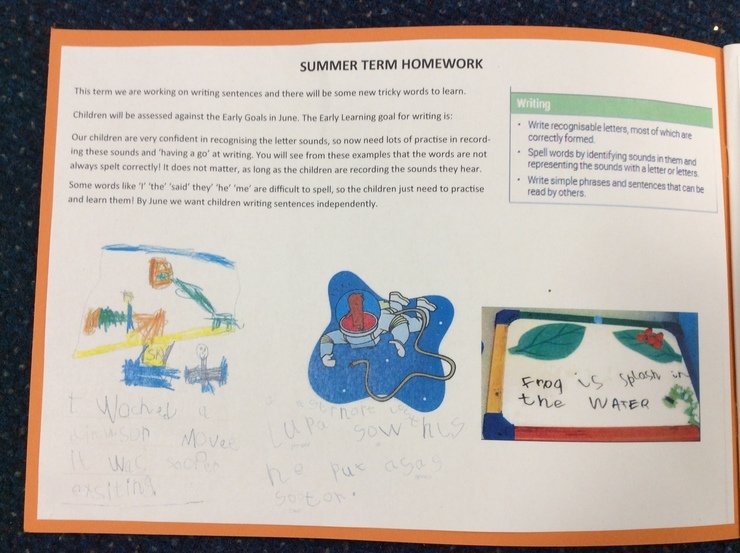 SUMMER TERM HOMEWORK
This term we are working on writing sentences and there will be some new tricky words to learn.
Children will be assessed against the Early Goals in June. The Early Learning goal for writing is:
Our children are very confident in recognising the letter sounds, so now need lots of practise in record-
ing these sounds and 'having a go' at writing. You will see from these examples that the words are not
always spelt correctly! It does not matter, as long as the children are recording the sounds they hear.
Some words like 'I' 'the' 'said' they' 'he' 'me' are difficult to spell, so the children just need to practise
and learn them! By June we want children writing sentences independently.
Writing
• Write recognisable letters, most of which are
correctly formed.
• Spell words by identifying sounds in them and
representing the sounds with a letter or letters.
• Write simple phrases and sentences that can be
read by others.
I Woched a
Movee
It Was sooper
exsiting
sow this
he put
Frog is splash in
the WATER